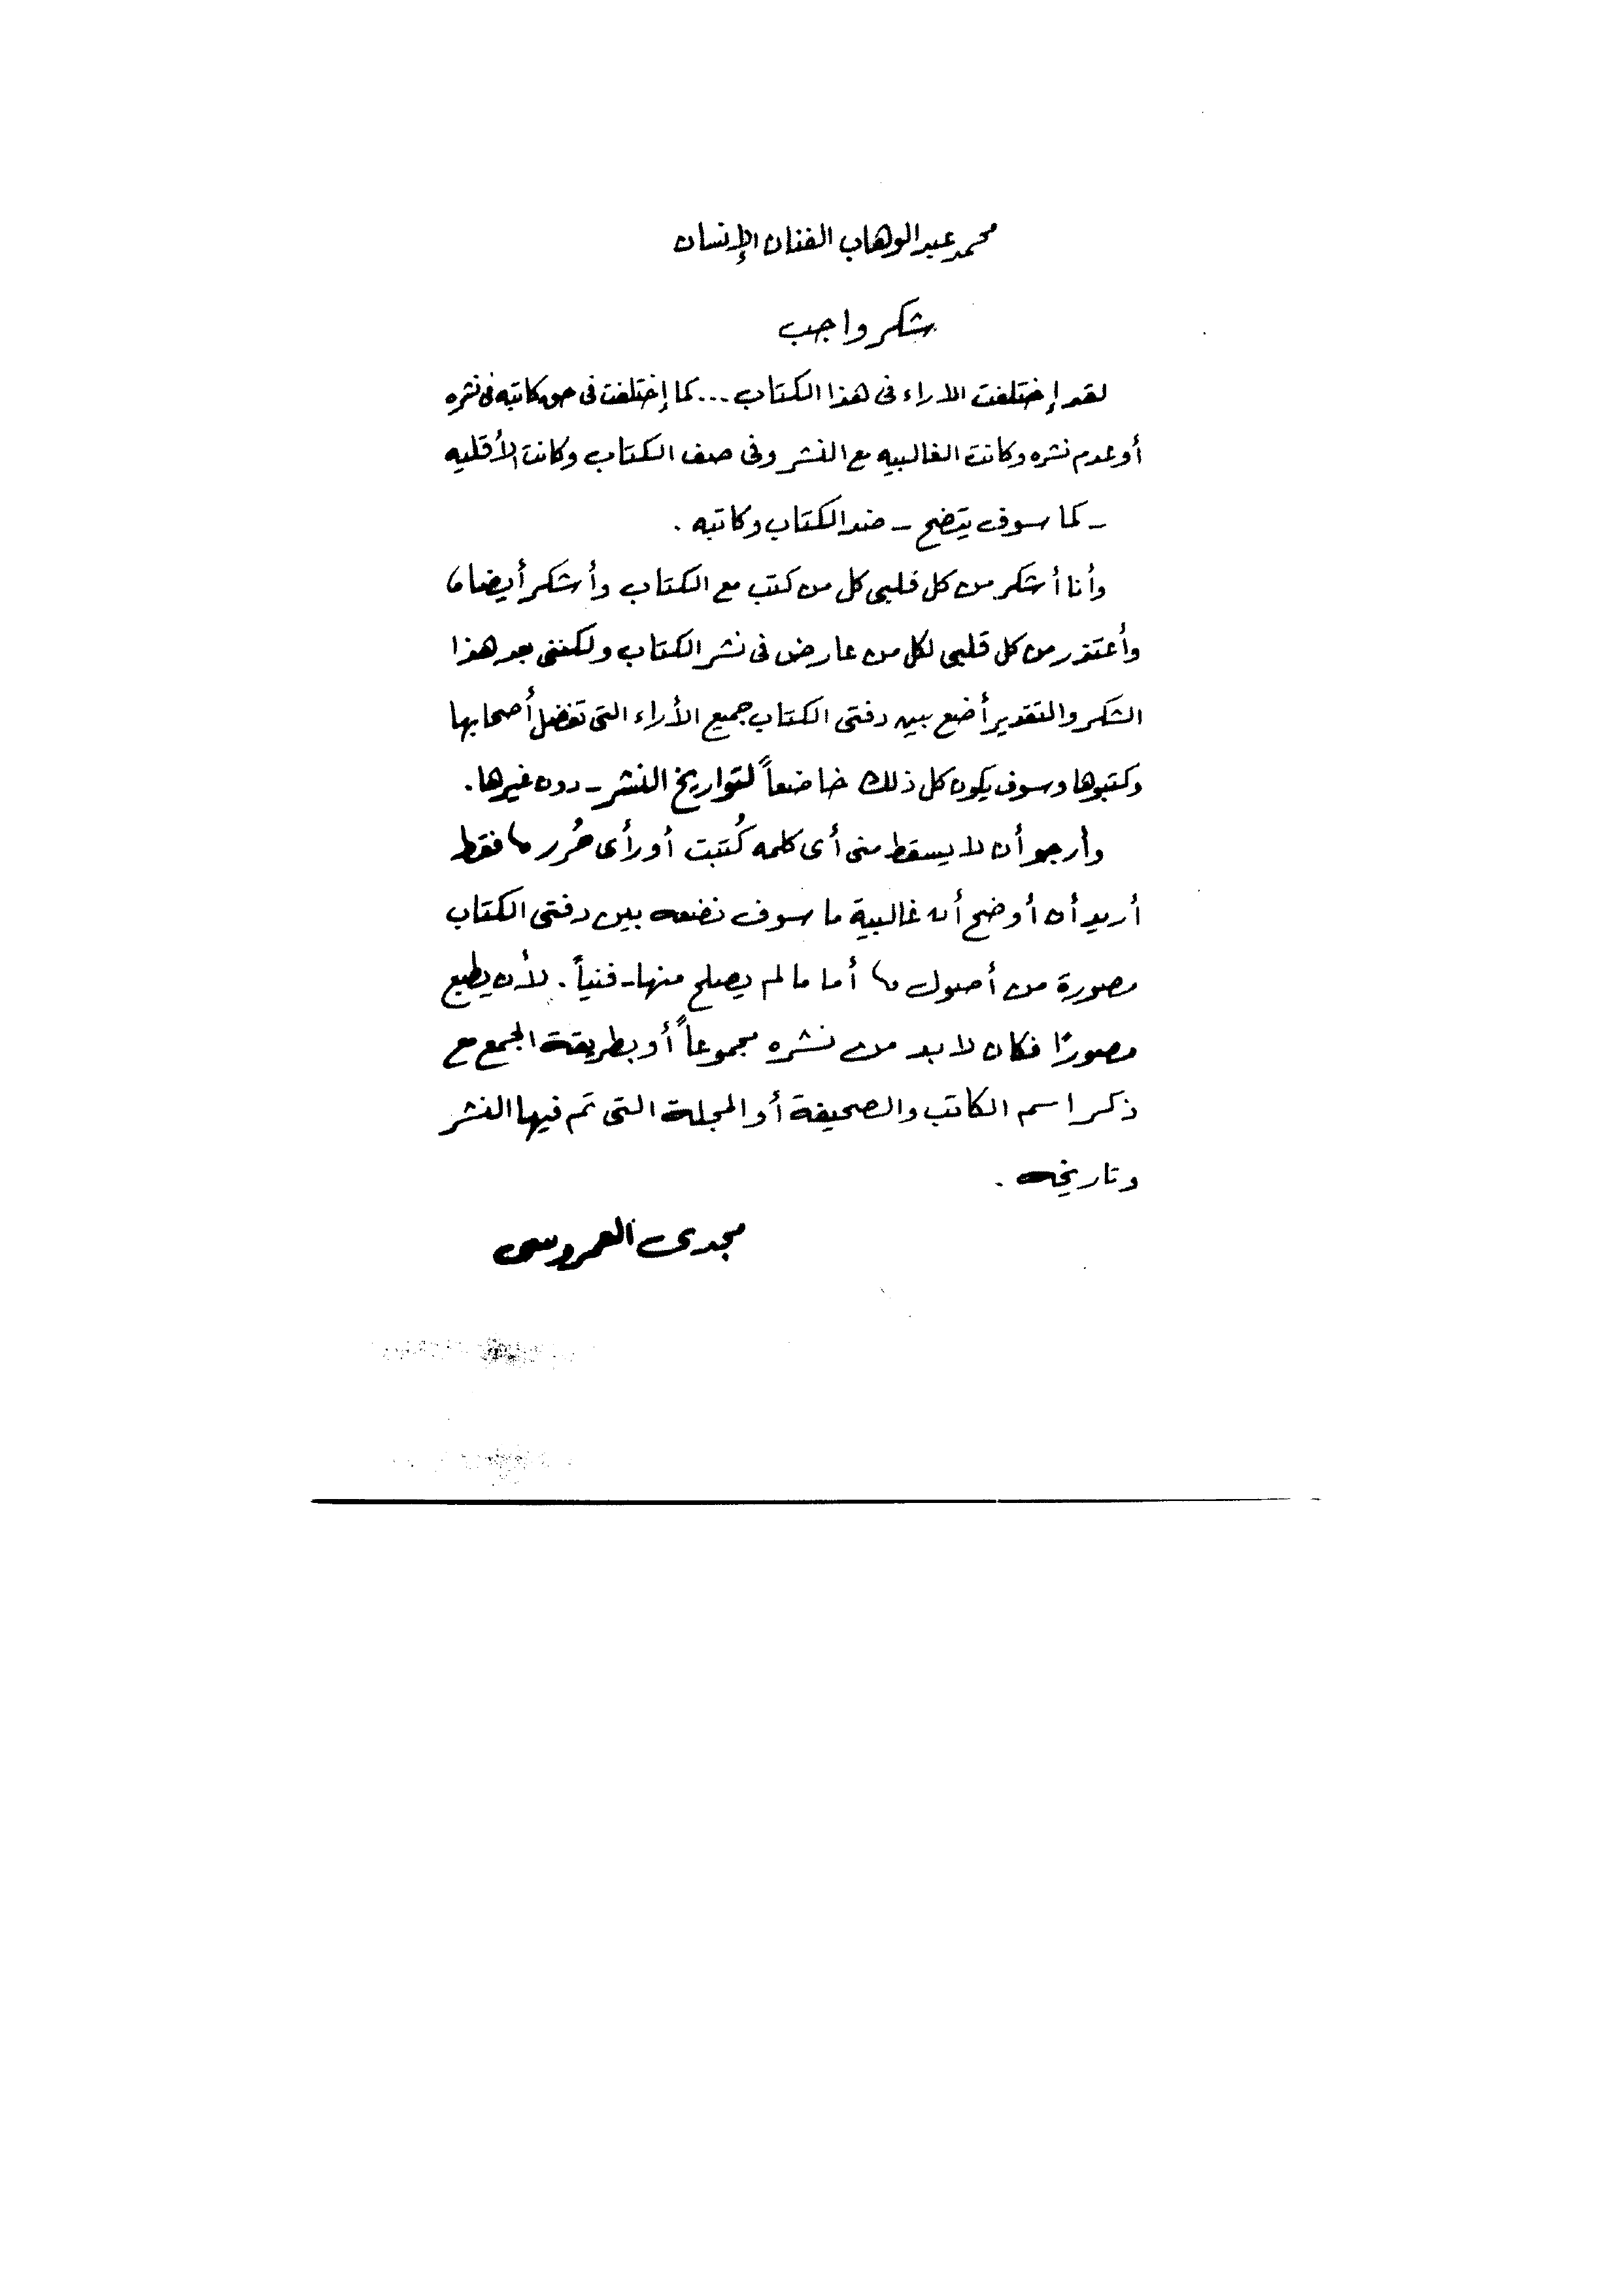 محمد عبد الوهاب الفنان الإنسان
شكر واجب
لقد إختلفت الاراء فى هذا الكتاب ... كما إختلفت فى حق كاتبه فى نشره
أو عدم نشره وكانت الغالبيه مع النشر وفى صف الكتاب وكانت الأقليه
ــ كما سوف يتضح ــ ضد الكتاب وكاتبه .
وأنا أشكر من كل قلبى كل من كتب مع الكتاب وأشكر أيضا ،
وأعتذر من كل قلبى لكل من عارض فى نشر الكتاب ولكننى بعد هذا
الشكر والتقدير أضع بين دفتى الكتاب جميع الأراء التى تفضل أصحابها
وكتبوها وسوف يكون كل ذلك خاضعاً لتواريخ النشر ــ دون غيرها .
وأرجو أن لا يسقط منى أى كلمه كُتبت أو رأى حُرر ، فقط
أريد أن أوضح أن غالبية ما سوف نضعه بين دفتى الكتاب
مصورة من أصول ، أما ما لم يصلح منها ــ فنياً . لأن يطبع
مصورًا فكان لا بد من نشره مجموعاً أو بطريقة الجمع مع
ذكر اسم الكاتب والصحيفة أو المجلة التى تم فيها النشر
وتاريخه .
مجدى العمروسى